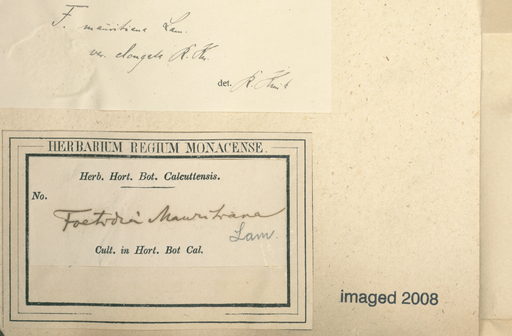 F. mauritiana Lam.
var. elongata R. Kn.
det. R. Knut
HERBARIUM REGIUM MONACENSE.
Herb. Hort. Bot. Calcuttensis.
No.
Foetidia Mauritiana
Lam.
Cult. in Hort. Bot Cal.
imaged 2008